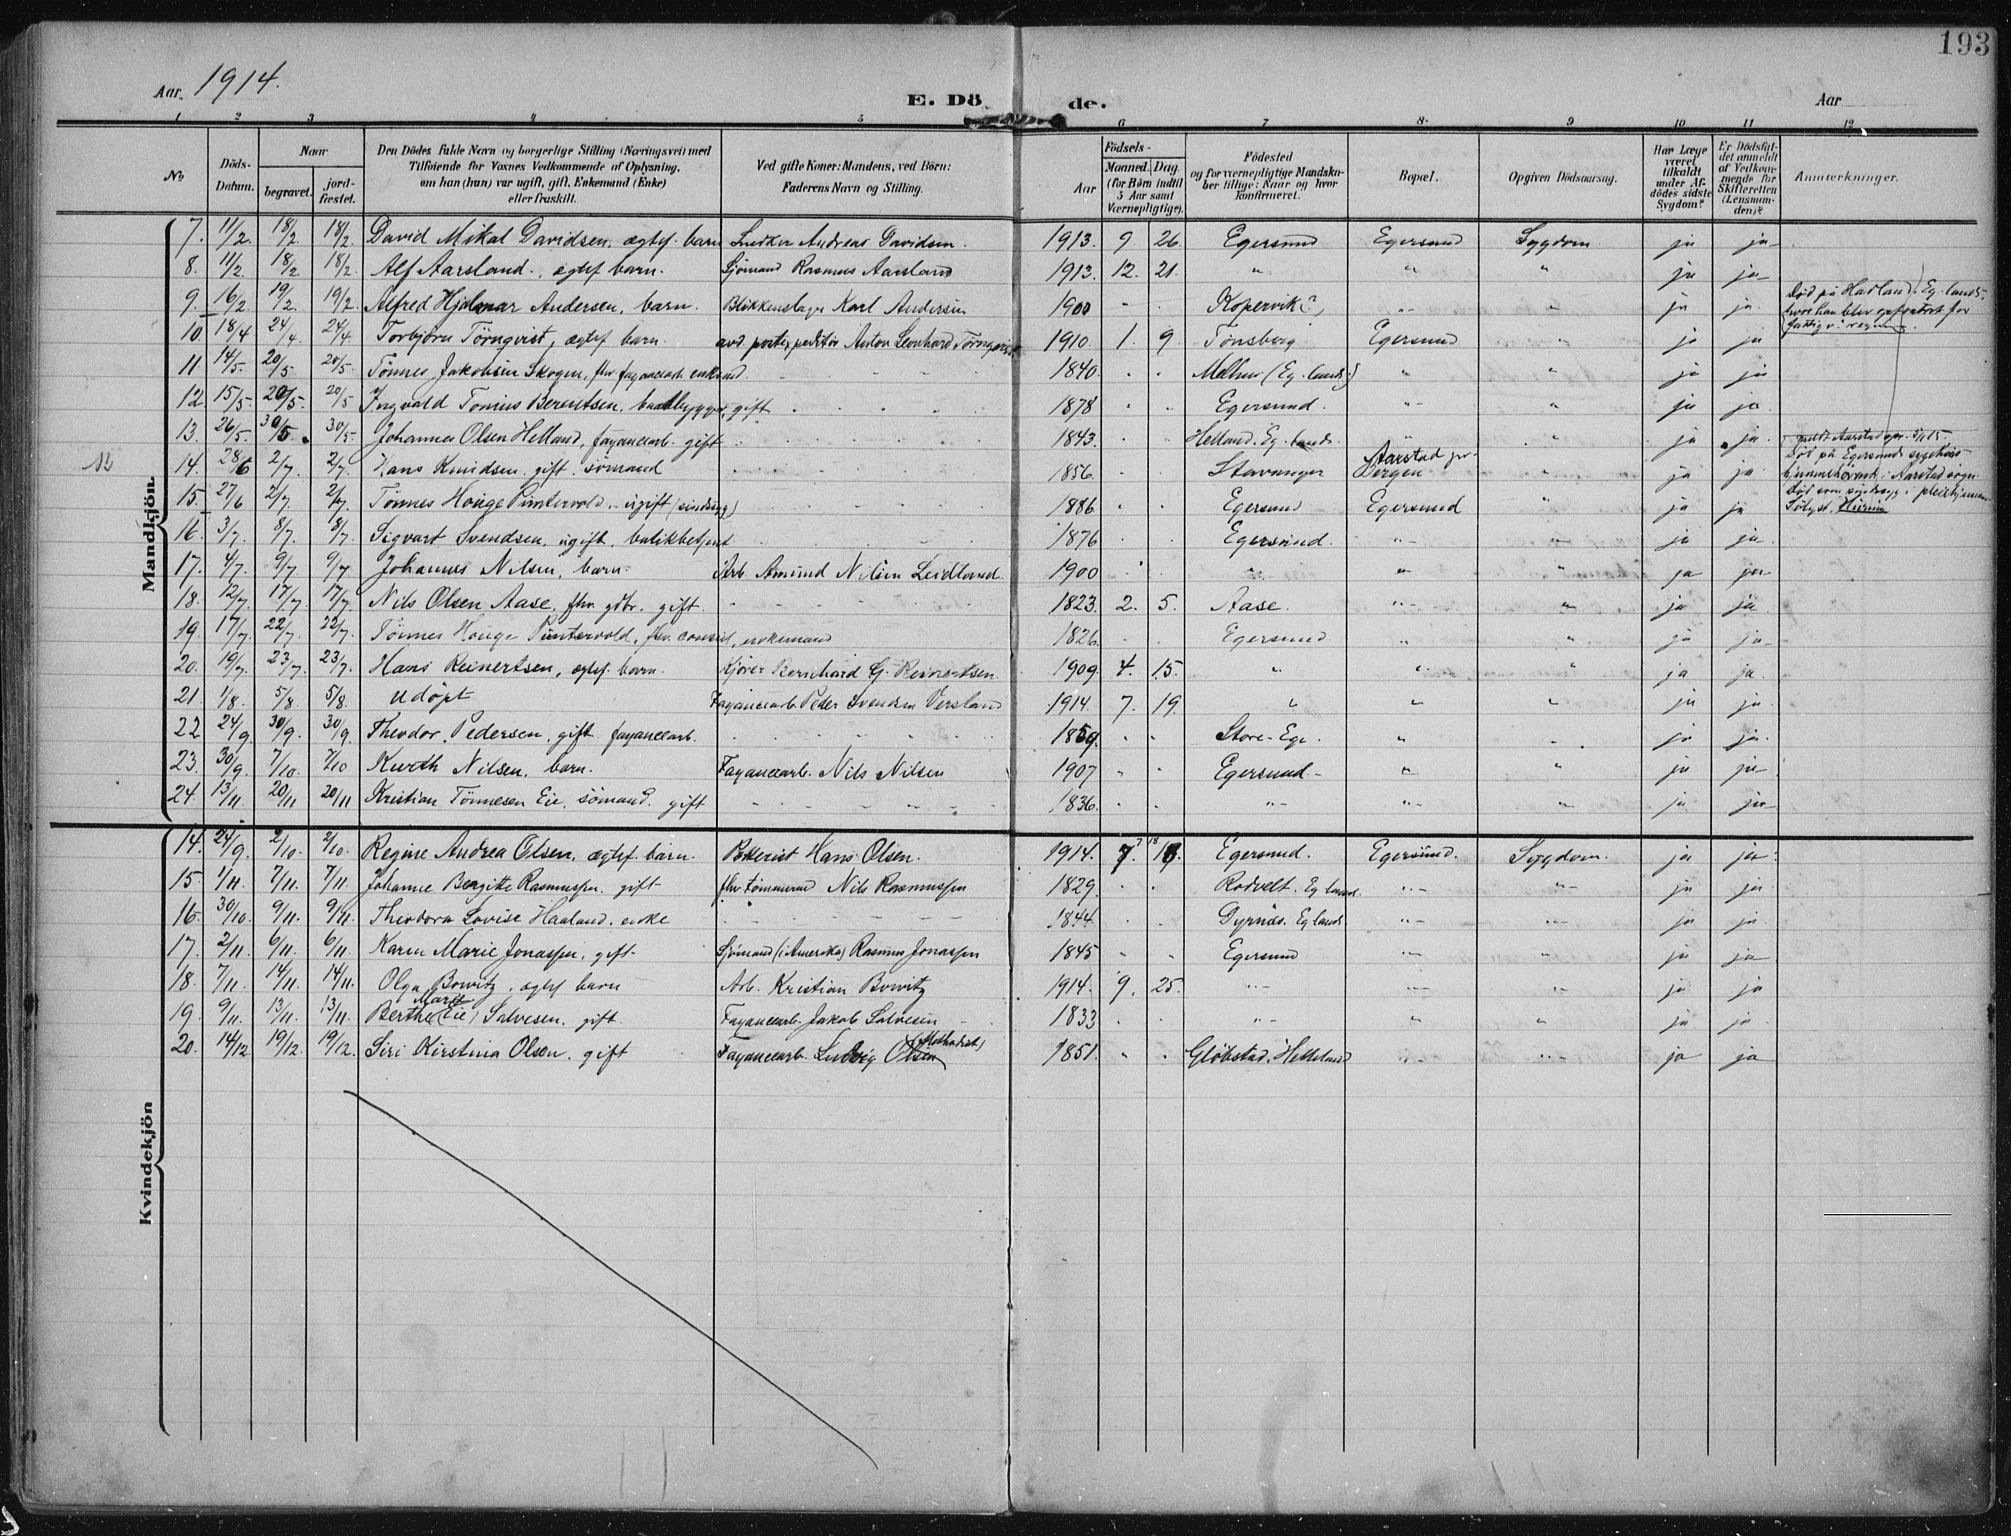 193
Aar 1914.
E. Dö de.
Aar
1 2 3 4 5 6 7 8 9 10 11 12
No.
Döds-Datum.
Naar
begravet.
jord-fæstet.
Den Dödes fulde Navn og borgerlige Stilling (Næringsvei) med
Tilföiende for Voxnes Vedkommende af Oplysning,
om han (hun) var ugift, gift, Enkemand (Enke)
eller fraskilt.
Ved gifte Koner: Mandens, ved Börn:
Faderens Navn og Stilling.
Födsels-
Aar
Maaned. Dag.
(for Börn indtil
5 Aar samt
Værnepligtige).
Födested
og for værnepligtige Mandska-
ber tillige: Naar og hvor
konfirmeret.
Bopæl.
Opgiven Dödsaarsag.
Har Læge
været
tilkaldt
under Af-
dödes sidste
Sygdom?
Er Dödsfal-
det anmeldt
af Vedkom-
mende for
Skifteretten
(Lensman-
den)?
Anmærkninger.
Mandkjön.
7. 11/2 18/2 18/2 David Mikal Davidsen, ægtef. barn Snedker Andreas Davidsen. 1913. 9. 26. Egersund Egersund Sygdom ja ja
8. 11/2 18/2 18/2 Alf Aarsland, ægtef barn. Sjömand Rasmus Aarsland 1913. 12. 21. " " " ja ja
9. 16/2 19/2 19/2 Alfred Hjalmar Andersen, barn. Blikkenslager Karl Andersen 1900 Kopervik?, " " ja ja. Död på Hadland, Eg. lands.
hvor han blev
10. 18/4 24/4 24/4 Torbjörn Törnqvist, ægtef barn. Anton Leonhard Törnqvist 1910. 1. 9. Tönsberg Egersund " ja ja
11. 14/5 20/5 20/5 Tönnes Jakobsen Skogen, fhv. fayancearb. enkem. 1840. (Eg. lands.) " " ja ja
12. 15/5 20/5. 20/5 Ingvald Tomius Berentsen, baadbygger, gift 1878 Egersund. " " ja ja.
13. 26/5. 30/5. 30/5. Johannes Olsen Helland, fayancearb. gift 1843. Helland. Eg. lands. " " ja ja.
14. 28/6 2/7. 2/7. Hans Knudsen, gift. sömand 1856. Stavanger Bergen " ja ja Död på Egersunds sygehus
Aarstad
15. 27/6 2/7. 2/7. Tönnes Houge Puntervold, ugift 1886 Egersund Egersund " ja ja
16. 3/7. 8/7. 8/7. Sigvart Svendsen, ugift, butikbetjent 1876 Egersund. " " ja ja.
17. 4/7. 9/7 9/7 Johannes Nilsen, barn. Arb. Amund Nilsen Leidland. 1900 " " " ja ja
18. 12/7. 17/7. 17/7. Nils Olsen Aase, fhv. gdbr. gift. 1823. 2. 5. Aase. " " ja ja.
19. 17/7. 22/7. 22/7. Tönnes Houge Puntervold, fhv. consul, enkemand 1826. Egersund " " ja ja
20. 19/7. 23/7. 23/7. Hans Reinertsen, ægtef. barn. Kjörer Bernhard G. Reinertsen 1909. 4. 15. " " " ja ja.
21. 1/8. 5/8 5/8. Udöpt Fayancearb. Peder Svendsen Versland 1914. 7. 19. " " " ja ja
22 24/9. 30/9. 30/9. Theodor Pedersen, gift fayancearb. 1859. Store-Ege. " " ja ja.
23. 30/9. 7/10. 7/10 Kurth Nilsen, barn. Fayancearb. Nils Nilsen 1907 Egersund " " ja ja
24. 13/11 20/11 20/11 Kristian Tönnesen Eie, sömand. gift 1836. " " " ja ja
Kvindekjön
14. 24/9. 2/10. 2/10. Regine Andrea Olsen, ægtef. barn. Hans Olsen. 1914. 7. 18. Egersund. Egersund. Sygdom. ja ja
15. 1/11. 7/11. 7/11. Johanne Bergitte Rasmussen, gift fhv. tömmermd Nils Rasmussen 1829. Rodvelt. Eg land. " " ja ja
16. 30/10. 9/11. 9/11. Theodora Lovise Haaland. enke 1844. Gyrnæs. Eg lands. " " ja ja.
17. 2/11. 6/11. 6/11. Karen Marie Jonassen, gift. Sjömand (i Amerika) Rasmus Jonassen 1845 Egersund " " ja ja
18. 7/11. 14/11. 14/11. Olga Bowitz, ægtef barn Arb. Kristian Bowitz 1914. 9. 25. " " " ja ja
19. 9/11. 13/11. 13/11. Berthe Marie (Eie) Salvesen. gift. Fayancearb. Jakob Salvesen 1833 " " " ja ja.
20. 14/12. 19/12. 19/12. Siri Kirstina Olsen. gift Fayancearb. Ludvig Olsen (Methodist) 1851. Glöbstad. Helleland " " ja ja